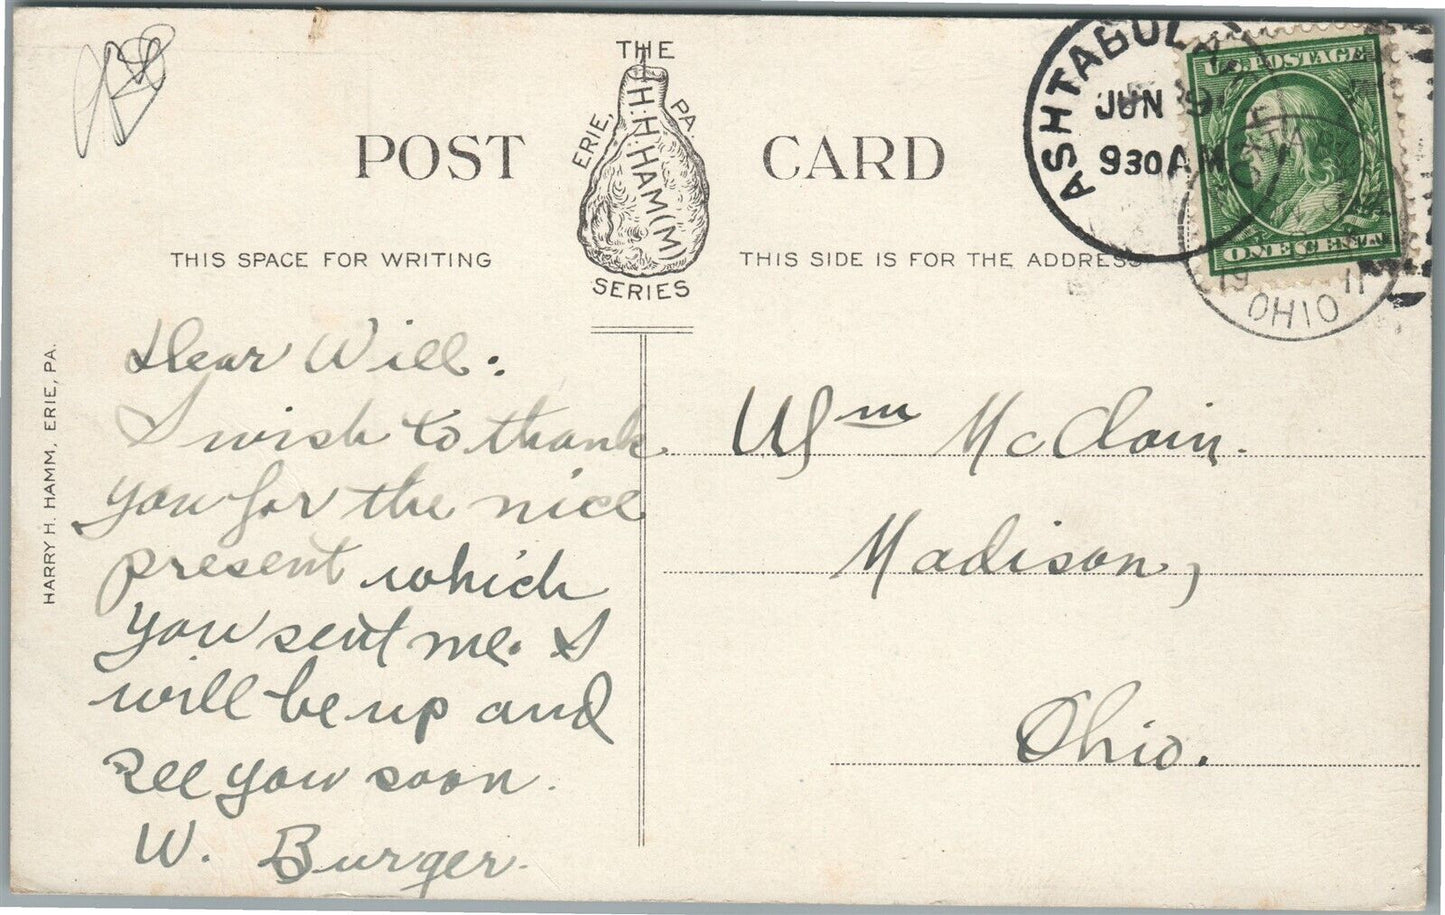 THE
H.H.HAM(M)
ERIE, PA.
SERIES
POST CARD
THIS SPACE FOR WRITING
THIS SIDE IS FOR THE ADDRESS
HARRY H. HAMM, ERIE, PA.
ASHTABULA
JUN 9
930AM
OHIO
U.S. POSTAGE
ONE CENT
19 11
OHIO
Dear Will:
I wish to thank
you for the nice
present which
you sent me. I
will be up and
see you soon.
W. Burger.
Wm McClain.
Madison,
Ohio.